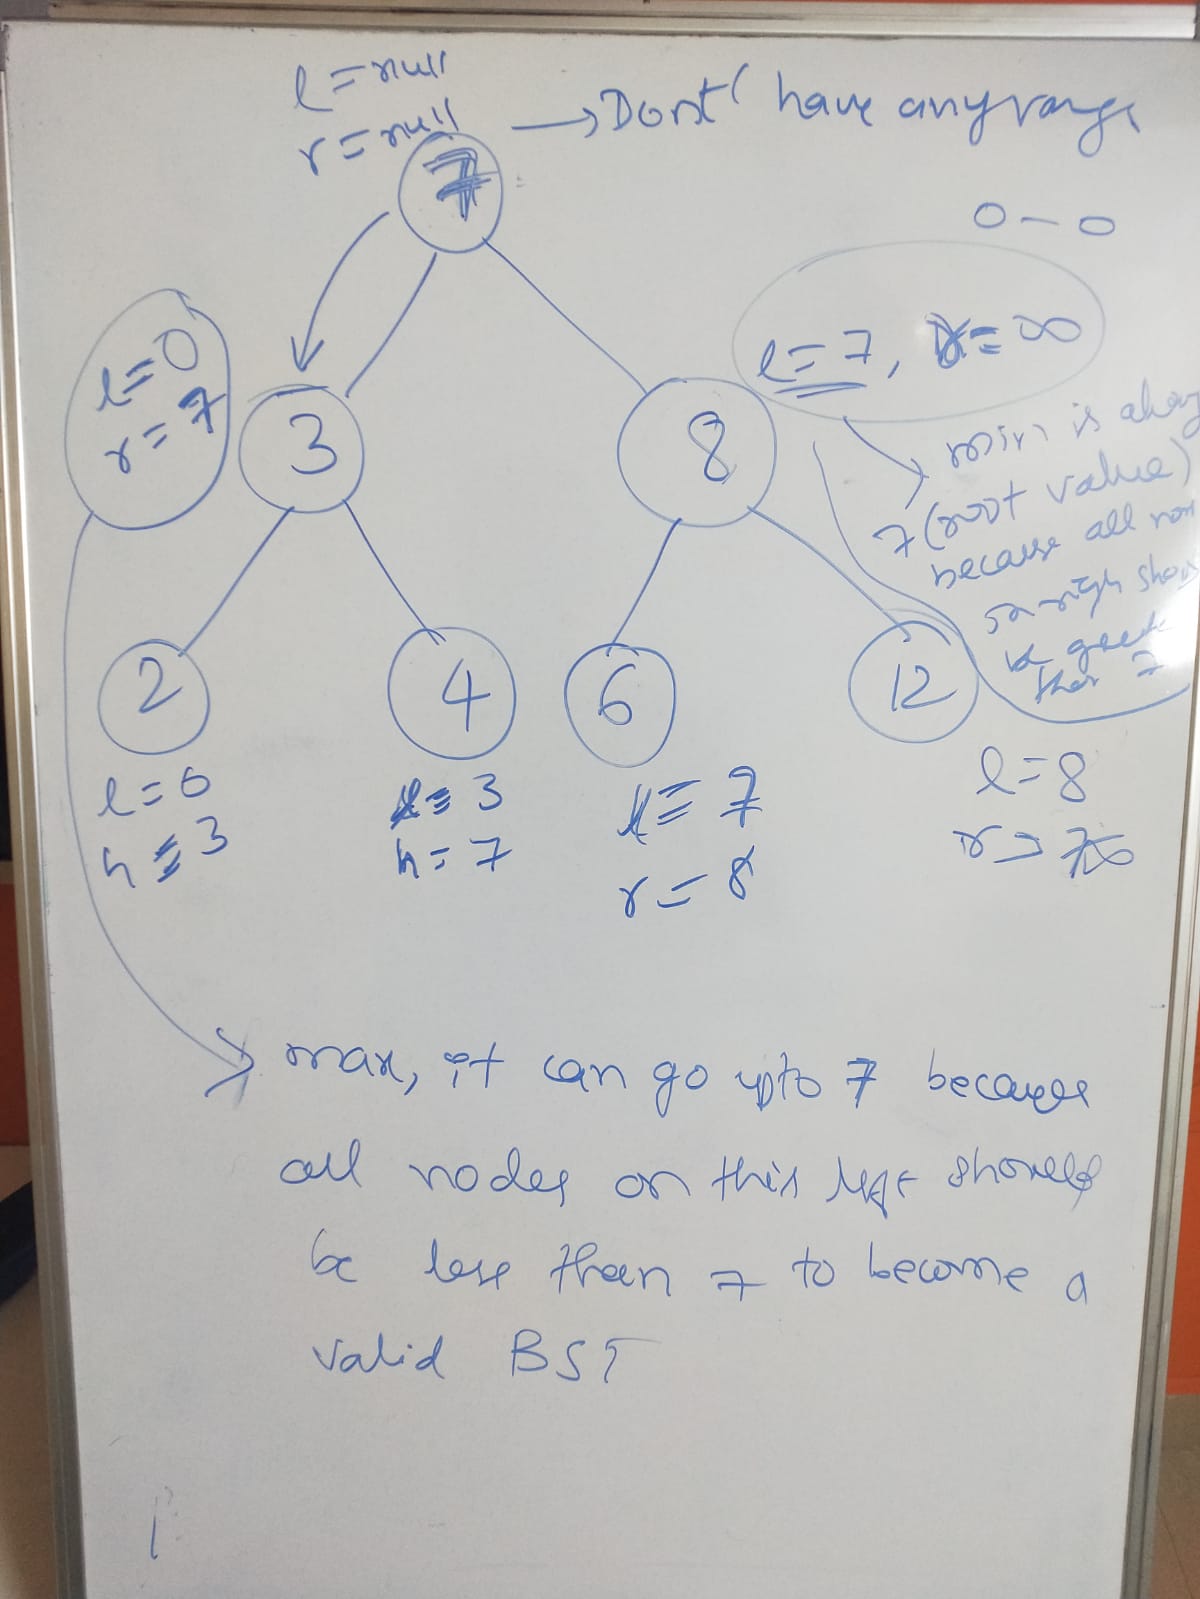 l=null
r=null
→Dont have any range
7
0-0
l=0
r=7
3
8
l=7, r=∞
min is alway
7 (root value)
because all no
on righ shou
be greate
than 7
2
4
6
12
l=0
h=3
l=3
h=7
l=7
r=8
l=8
r=∞
max, it can go upto 7 because
all nodes on this left should
be less than 7 to become a
valid BST